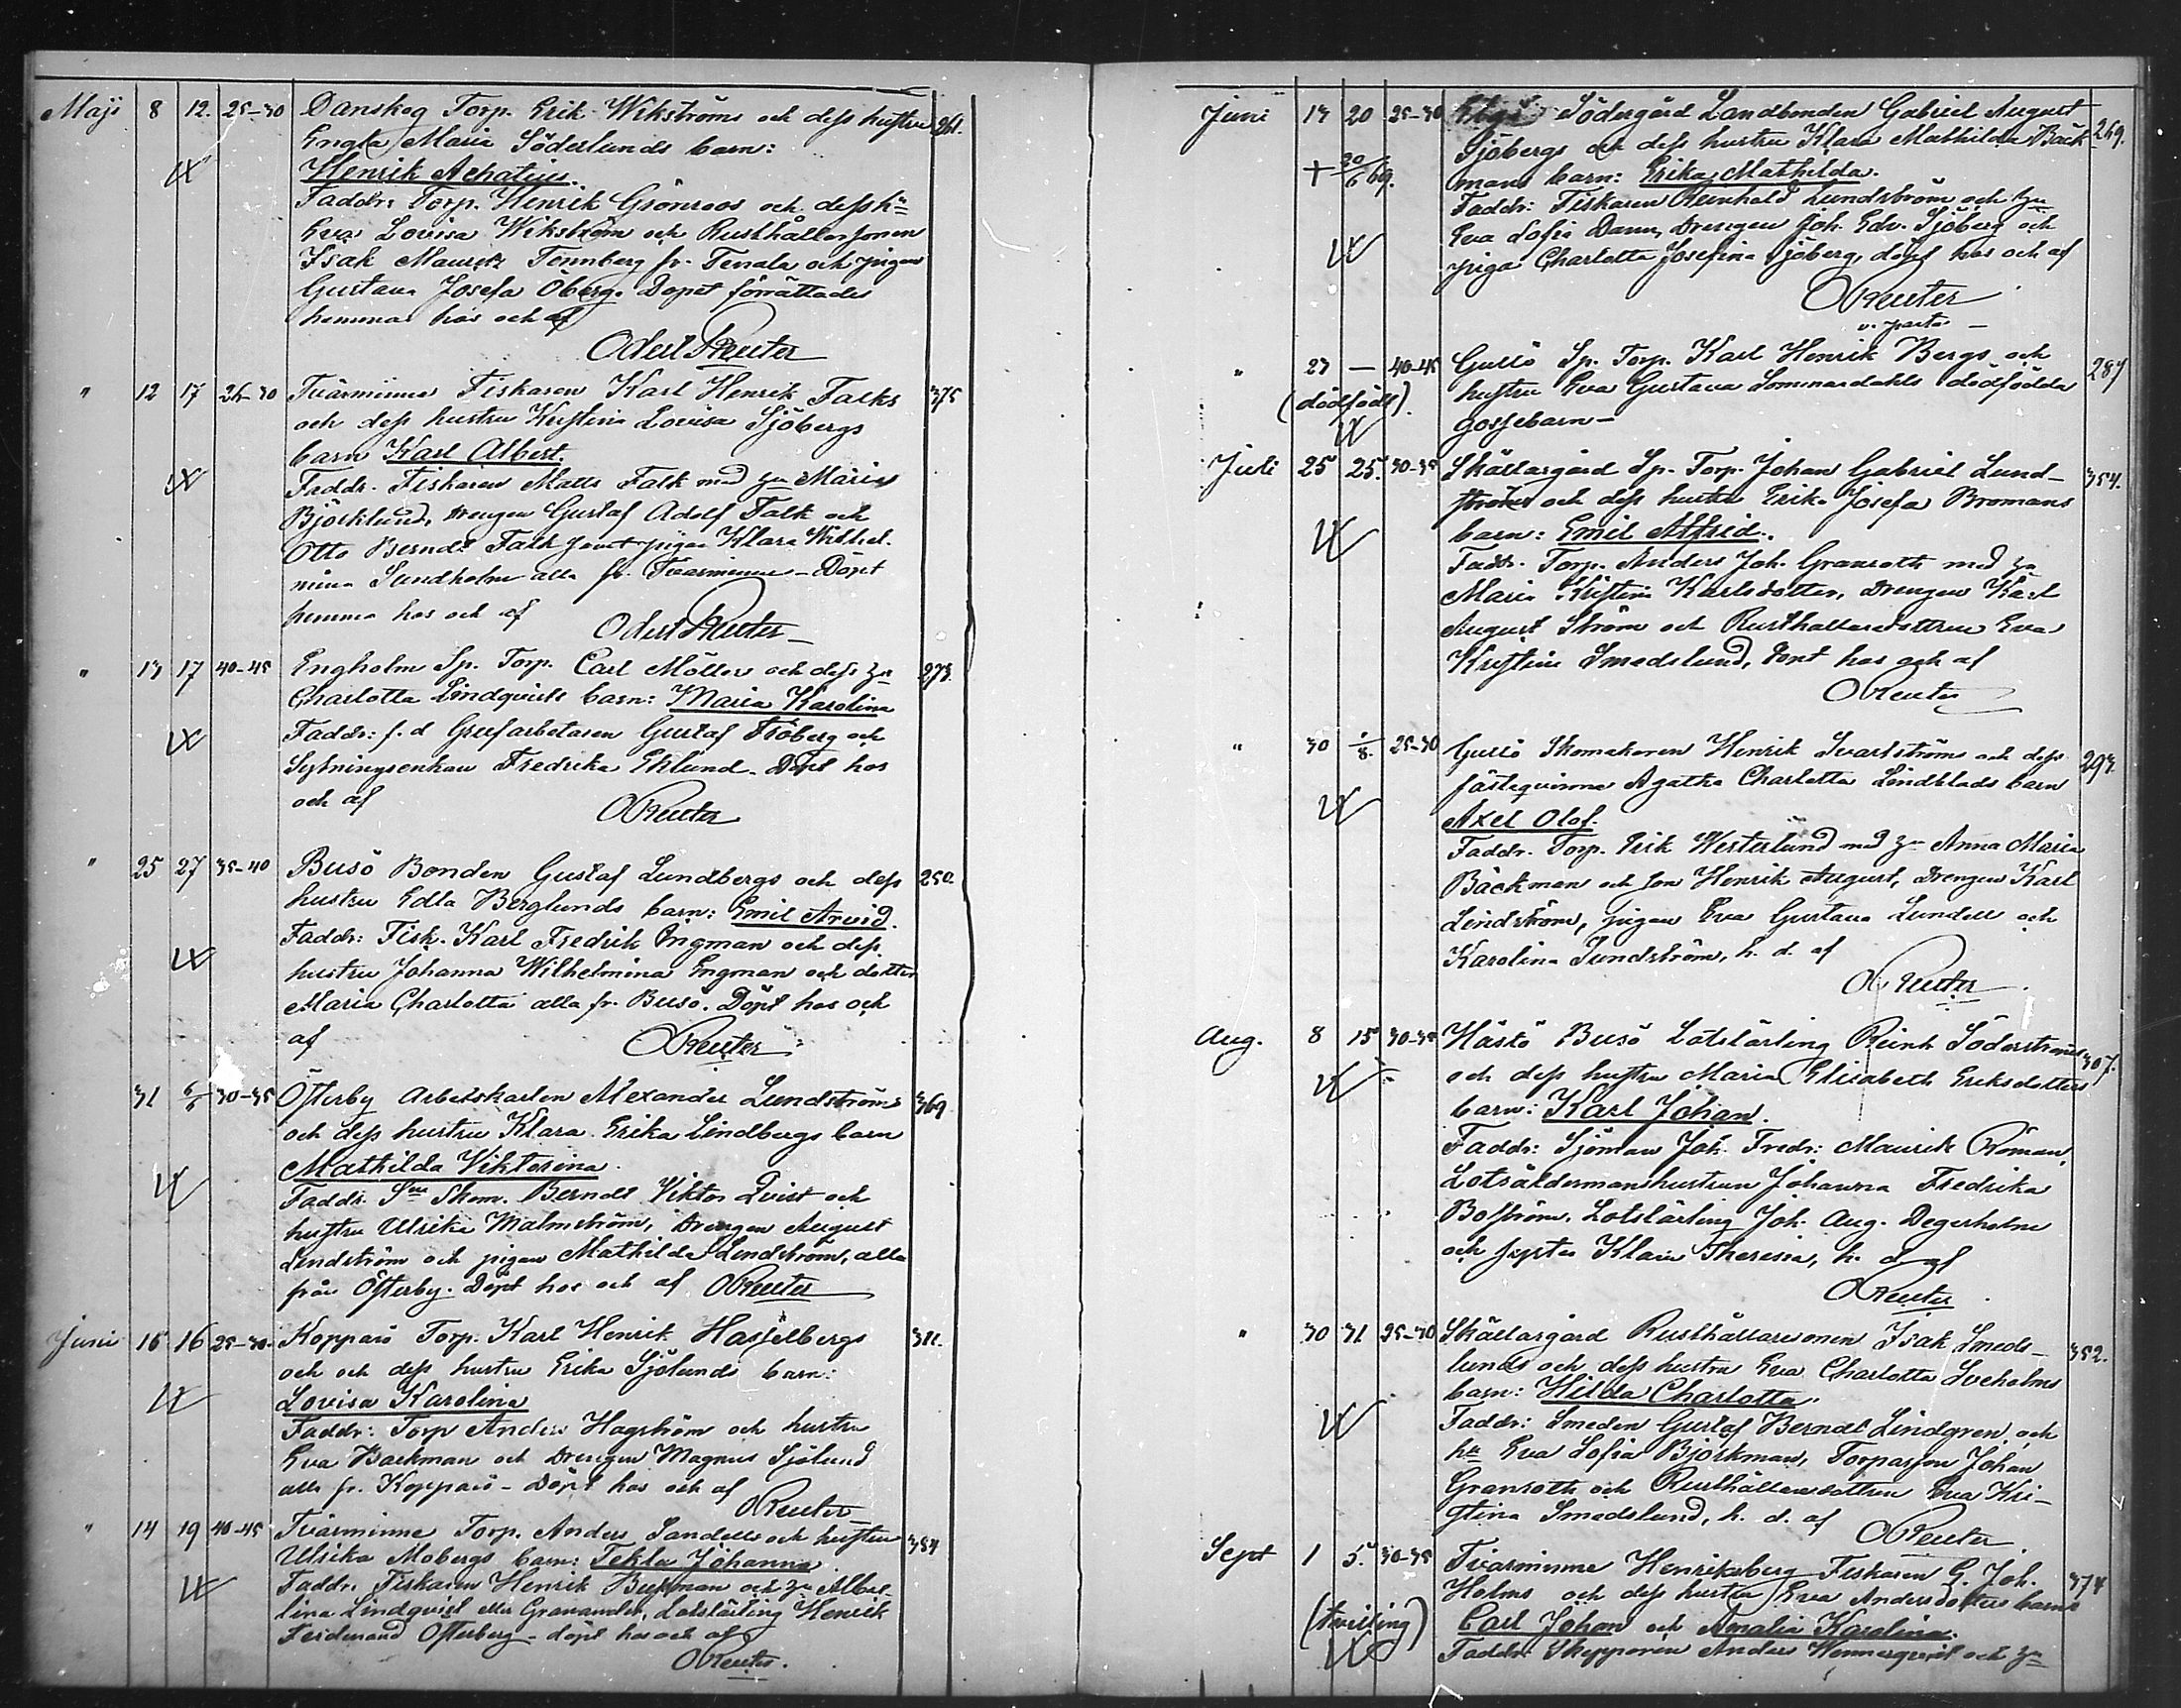 Maji 8 12. 25-30 Danskog Torp. Erik Wikströms och dess hustru 261.
Engla Maria Söderlunds barn:
Henrik Achatius.
Faddr: Torp. Henrik Grönroos och dess h
Eva Lovisa Wikström och Rusthållarsonen
Isak Maurits Tönnberg fr. Tenala och pigan
Gustava Josefa Öberg. Dopet förrättades
hemma hos och af
Odert Reuter
" 12 17 26-30 Tvärminne Fiskaren Karl Henrik Falks 375
och dess hustru Kristina Lovisa Sjöbergs
barn Karl Albert.
Faddr. Fiskaren Matts Falk med Maria
Björklund, drengen Gustaf Adolf Falk och
Otto Berndt Falk samt pigan Klara Wilhel-
mina Sundholm alla fr. Tvärminne - Döpt
hemma hos och af
Odert Reuter
" 13 17 40-45 Engholm Sp. Torp. Carl Möllers och dess
Charlotta Lindqvists barn: Maria Karolina
Faddr: f.d Grufarbetaren Gustaf Fröberg och
Sytningsenkan Fredrika Eklund. Döpt hos
och af
OReuter
" 25 27 35-40 Busö Bonden Gustaf Lundbergs och dess 250.
hustru Edla Berglunds barn: Emil Arvid.
Faddr: Fisk. Karl Fredrik Engman och dess
hustru Johanna Wilhelmina Engman och dotter
Maria Charlotta alla fr. Busö. Döpt hos och
af
OReuter
31 6/6 30-35 Österby Arbetskarlen Alexander Lundströms 369
och dess hustru Klara Erika Lindbergs barn
Mathilda Viktorina.
Faddr. Skom. Berndt Viktor Qvist och
hustru Ulrika Malmström, Drengen August
Lindström och pigan Mathilda Lindström, alla
från Österby. Döpt hos och af OReuter
Juni 15 16 25-30. Kopparö Torp. Karl Henrik Hasselbergs 311.
och och dess hustru Erika Sjölunds barn:
Lovisa Karolina
Faddr: Torp Anders Hagström och hustru
Eva Backman och Drengen Magnus Sjölund
alla fr. Kopparö - Döpt hos och af
OReuter
" 14 19 40-45 Tvärminne Torp. Anders Sandells och hustru 384
Ulrika Mobergs barn: Tekla Johanna.
Faddr. Fiskaren Henrik och Alber-
tina Lindqvist eller Granander, Lotslärling Henrik
Ferdinand Österberg - döpt hos och af
OReuter.
Juni 13 20 25-30 Södergård Landbonden Gabriel August 269.
Sjöbergs och dess hustru Klara Mathilda Bäck-
+ 20/6 69. mans barn: Erika Mathilda.
Faddr: Fiskaren Reinhold Lundström och
Eva Sofia Dann, Drengen Joh. Edv. Sjöberg och
piga Charlotta Josefina Sjöberg, döpt hos och af
OReuter
v. pastor -
" 23 - 40-45 Gullö Sp. Torp. Karl Henrik Bergs och 287
(dödfödt). hustru Eva Gustava Sommardahls dödfödda
gossebarn -
Juli 25 25. 30-35 Skällargård Sp. Torp. Johan Gabriel Lund- 354.
ströms och dess hustru Erika Josefa Bromans
barn: Emil Alfrid.
Faddr. Torp. Anders Joh. Granroth med
Maria Kristina Karlsdotter, Drengen Karl
August Ström och Rusthållaredottren Eva
Kristina Smedslund, döpt hos och af
OReuter
" 30 1/8. 25-30 Gullö Skomakaren Henrik Svartströms och dess 293.
fästeqvinna Agatha Charlotta Lindblads barn
Axel Olof.
Faddr. Torp. Erik Westerlund med Anna Maria
Bäckman och son Henrik August, Drengen Karl
Lindström, pigan Eva Gustava Lundell och
Karolina Sundström, h. d. af
OReuter
Aug. 8 15 30-35 Hästö Busö Lotslärling Reinh Söderströms 307.
och dess hustru Maria Elisabeth Eriksdotters
barn: Karl Johan.
Faddr: Sjöman Joh. Fredr: Maurits Röman,
Lotsåldermanshustrun Johanna Fredrika
Boström, Lotslärling Joh. Aug. Degerholm
och syster Klara Theresia, h. d. af
OReuter
" 30 31 25-30 Skällargård Rusthållaresonen Isak Smeds- 352.
lunds och dess hustru Eva Charlotta Sveholms
barn: Hilda Charlotta.
Faddr: Smeden Gustaf Berndt Lindgren och
h Eva Sofia Björkman, Torparson Johan
Granroth och Rusthållaredottren Eva Kri-
stina Smedslund, h. d. af
OReuter
Sept 1 5. 30-35 Tvärminne Henriksberg Fiskaren G. Joh. 374
Holms och dess hustru Eva Andersdotters barn
(tvilling) Carl Johan och Amalia Karolina.
Faddr. Skepparen Anders Wennerqvist och